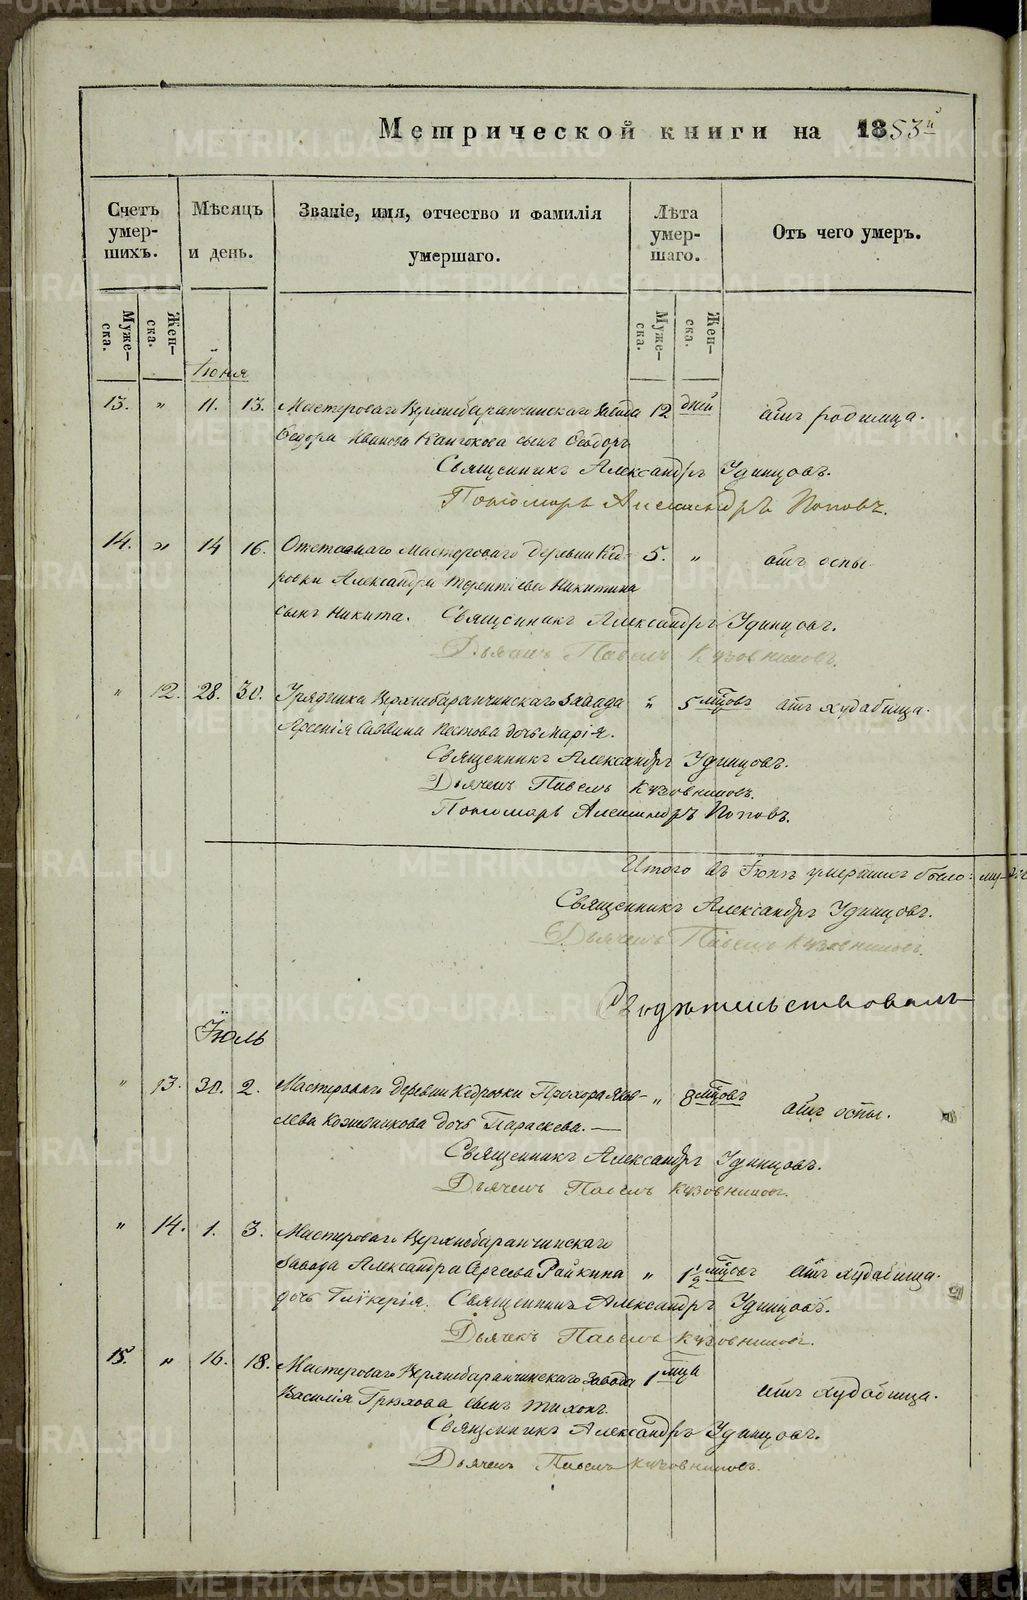 Метрической книги на 1853й
Счетъ умер-шихъ.
Мѣсяцъ и день.
Званіе, имя, отчество и фамилія умершаго.
Лѣта умер-шаго.
Отъ чего умеръ.
Муже-ска.
Жен-ска.
Муже-ска.
Жен-ска.
Іюня
13. " 11. 13. Мастероваго Верхнебаранчинскаго Завода 12 дней отъ родимца.
Ѳедора Иванова сынъ Ѳеодоръ
Священникъ Александръ Удинцовъ.
Пономарь Александръ Поповъ.
14. " 14 16. Отставнаго Мастероваго деревни Кед- 5. " отъ оспы
ровки Александра Терентіева Никитина
сынъ Никита. Священникъ Александръ Удинцовъ.
Дьячекъ Павелъ Кузовниковъ.
" 12. 28. 30. Урядника Верхнебаранчинскаго Завода " 5 мцовъ отъ худобища.
Арсенія Саввина Пестова дочь Марія.
Священникъ Александръ Удинцовъ.
Дьячекъ Павелъ Кузовниковъ.
Пономарь Александръ Поповъ.
Итого въ Іюнѣ умершихъ было:
Священникъ Александръ Удинцовъ.
Дьячекъ Павелъ Кузовниковъ.
Свидѣтельствовалъ
Іюль
" 13. 30. 2. Мастероваго деревни Кедровки Прохора Яков- " 8 мцовъ отъ оспы.
лева Кожевникова дочь Параскева. —
Священникъ Александръ Удинцовъ.
Дьячекъ Павелъ Кузовниковъ.
" 14. 1. 3. Мастероваго Верхнебаранчинскаго
Завода Александра Сергеева Райкина " 1½ мцовъ отъ худобища.
дочь Гликерія. Священникъ Александръ Удинцовъ.
Дьячекъ Павелъ Кузовниковъ.
15. " 16. 18. Мастероваго Верхнебаранчинскаго Завода 1 мца отъ худобища.
Василія Грюхова сынъ Тихонъ.
Священникъ Александръ Удинцовъ.
Дьячекъ Павелъ Кузовниковъ.
METRIKI.GASO-URAL.RU